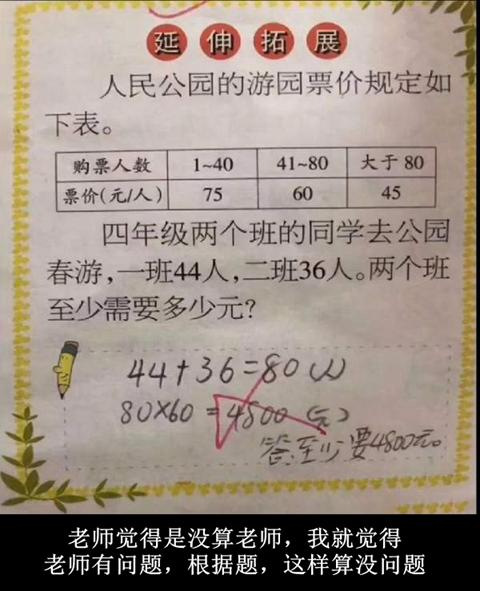 延伸拓展
人民公园的游园票价规定如
下表。
购票人数 1~40 41~80 大于 80
票价(元/人) 75 60 45
四年级两个班的同学去公园
春游,一班44人,二班36人。两个班
至少需要多少元?
44+36=80(人)
80×60=4800(元)
答:至少要4800元。
老师觉得是没算老师，我就觉得
老师有问题，根据题，这样算没问题